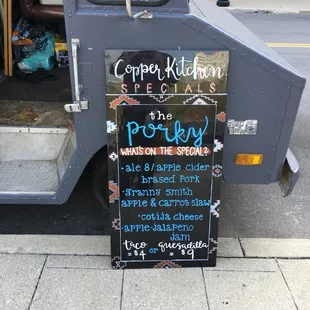 Copper Kitchen
SPECIALS
the
Porky
WHAT'S ON THE SPECIAL?
• ale 8/apple cider
brased Pork
• granny smith
apple & carrot slaw
• cotija cheese
apple-jalapeno
Jam
taco or quesadilla
= $4 = $9